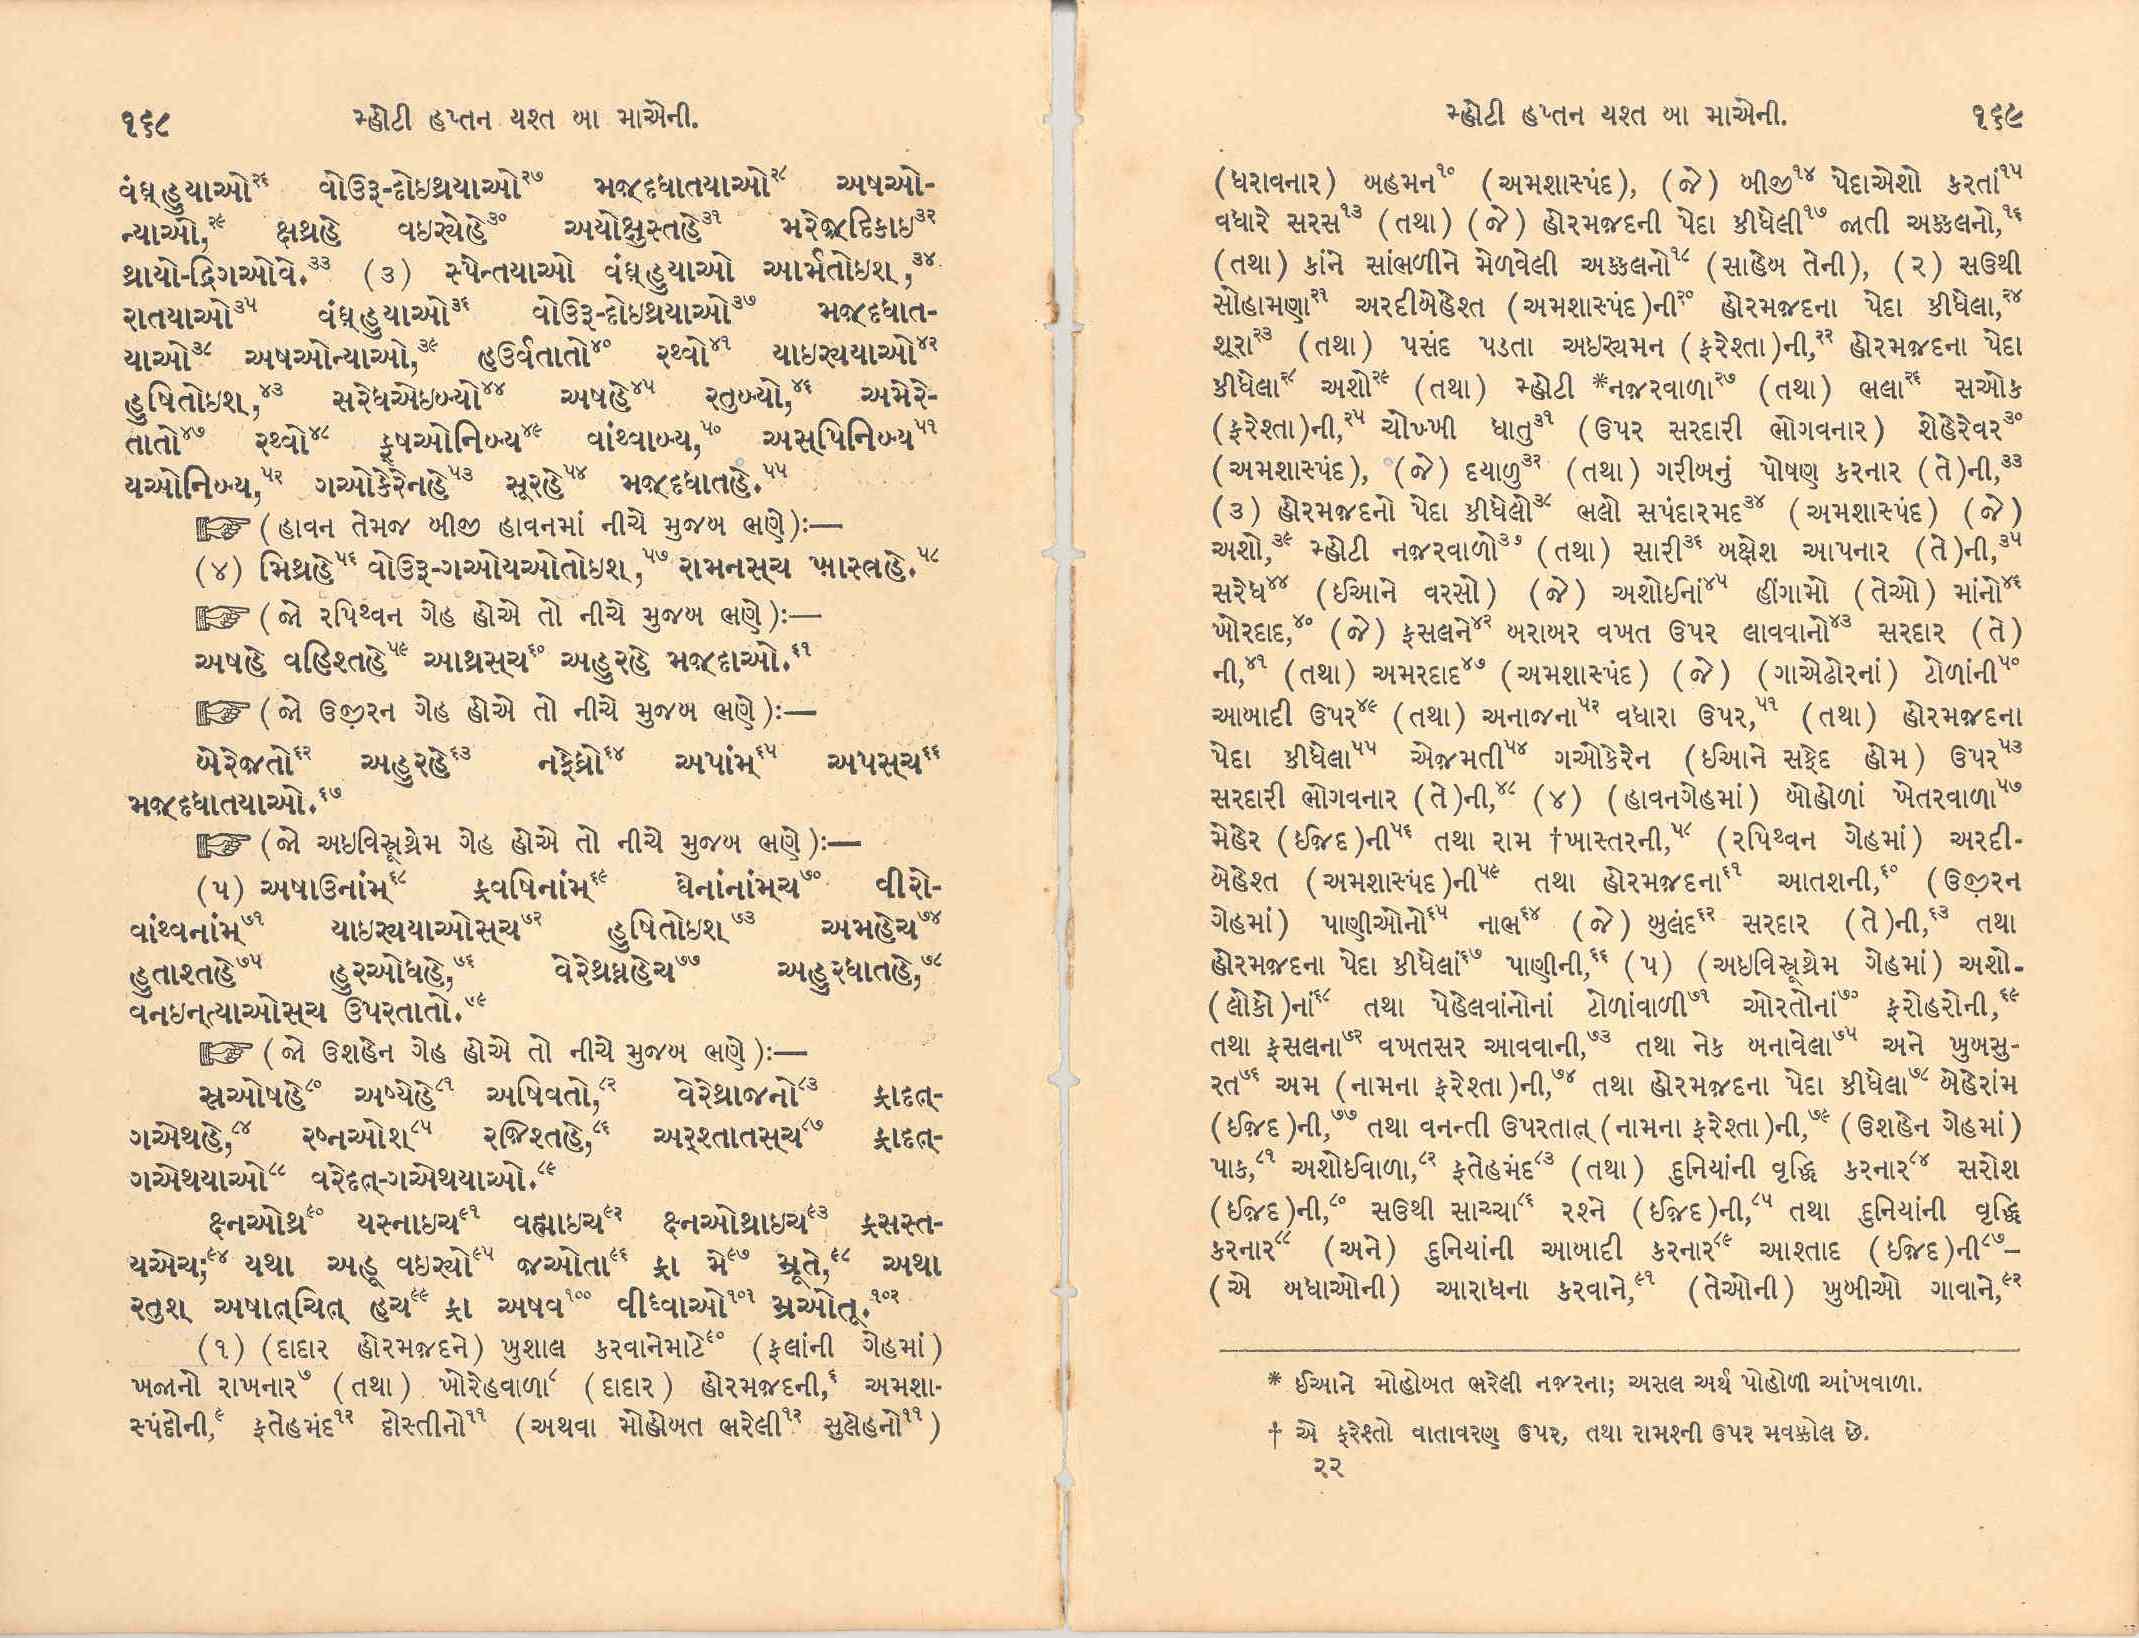 ૧૬૮ મ્હોટી હપ્તન યશ્ત બા માએની.
વંઘ્હુયાઓ૨૬ વોઉરૂ-દોઇથ્રયાઓ૨૭ મજ઼્દધાતયાઓ૨૮ અષઓ-
ન્યાઓ,૨૯ ક્ષથ્રહે વઇર્યેહે૩૦ અયોક્ષુસ્તહે૩૧ મરેજ઼્દિકાઇ૩૨
થ્રાયો-દ્રિગઓવે.૩૩ (૩) સ્પેન્તયાઓ વંઘ્હુયાઓ આર્મતોઇશ્,૩૪
રાતયાઓ૩૫ વંઘ્હુયાઓ૩૬ વોઉરૂ-દોઇથ્રયાઓ૩૭ મજ઼્દધાત-
યાઓ૩૮ અષઓન્યાઓ,૩૯ હઉર્વતાતો૪૦ રથ્વો૪૧ યાઇર્યયાઓ૪૨
હુષિતોઇશ્,૪૩ સરેધએઇબ્યો૪૪ અષહે૪૫ રતુબ્યો,૪૬ અમેરે-
તાતો૪૭ રથ્વો૪૮ ફ્ષઓનિબ્ય૪૯ વાંથ્વાબ્ય,૫૦ અસ્પિનિબ્ય૫૧
યઓનિબ્ય,૫૨ ગઓકેરેનહે૫૩ સૂરહે૫૪ મજ઼્દધાતહે.૫૫
(હાવન તેમજ બીજી હાવનમાં નીચે મુજબ ભણે):—
(૪) મિથ્રહે૫૬ વોઉરૂ-ગઓયઓતોઇશ્,૫૭ રામનસ્ચ ખ઼ાસ્ત્રહે.૫૮
(જો રપિથ્વન ગેહ હોએ તો નીચે મુજબ ભણે):—
અષહે વહિશ્તહે૫૯ આથ્રસ્ચ૬૦ અહુરહે મજ઼્દાઓ.૬૧
(જો ઉજ઼ીરન ગેહ હોએ તો નીચે મુજબ ભણે):—
બેરેજ઼તો૬૨ અહુરહે૬૩ નફેધ્રો૬૪ અપાંમ્૬૫ અપસ્ચ૬૬
મજ઼્દધાતયાઓ.૬૭
(જો અઇવિસ્રૂથ્રેમ ગેહ હોએ તો નીચે મુજબ ભણે):—
(૫) અષાઉનાંમ્૬૮ ફ્રવષિનાંમ્૬૯ ઘેનાંનાંમ્ચ૭૦ વીરો-
વાંથ્વનાંમ્૭૧ યાઇર્યયાઓસ્ચ૭૨ હુષિતોઇશ્૭૩ અમહેચ૭૪
હુતાશ્તહે૭૫ હુરઓધહે,૭૬ વેરેથ્રઘ્નહેચ૭૭ અહુરધાતહે,૭૮
વનઇન્ત્યાઓસ્ચ ઉપરતાતો.૭૯
(જો ઉશહેન ગેહ હોએ તો નીચે મુજબ ભણે):—
સ્રઓષહે૮૦ અષ્યેહે૮૧ અષિવતો,૮૨ વેરેથ્રાજનો૮૩ ફ્રાદત્-
ગએથહે,૮૪ રષ્નઓશ્૮૫ રજ઼િશ્તહે,૮૬ અર્શ્તાતસ્ચ૮૭ ફ્રાદત્-
ગએથયાઓ૮૮ વરેદત્-ગએથયાઓ.૮૯
ક્ષ્નઓથ્ર૯૦ યસ્નાઇચ૯૧ વહ્માઇચ૯૨ ક્ષ્નઓથ્રાઇચ૯૩ ફ્રસસ્ત-
યએચ;૯૪ યથા અહૂ વઇર્યો૯૫ જ઼ઓતા૯૬ ફ્રા મે૯૭ મ્રૂતે,૯૮ અથા
રતુશ્ અષાત્ચિત્ હચ૯૯ ફ્રા અષવ૧૦૦ વીધ્વાઓ૧૦૧ મ્રઓતૂ.૧૦૨
(૧) (દાદાર હોરમજ઼દને) ખુશાલ કરવાનેમાટે૯૦ (ફલાંની ગેહમાં)
ખજાનો રાખનાર૭ (તથા) ખોરેહવાળા૮ (દાદાર) હોરમજ઼દની,૬ અમશા-
સ્પંદોની,૯ ફતેહમંદ૧૨ દોસ્તીનો૧૧ (અથવા મોહોબત ભરેલી૧૨ સુલેહનો૧૧)
મ્હોટી હપ્તન યશ્ત બા માએની. ૧૬૯
(ધરાવનાર) બહમન૧૦ (અમશાસ્પંદ), (જે) બીજી૧૪ પેદાએશો કરતાં૧૫
વધારે સરસ૧૩ (તથા) (જે) હોરમજ઼દની પેદા કીધેલી૧૭ જાતી અક્કલનો,૧૬
(તથા) કાંને સાંભળીને મેળવેલી અક્કલનો૧૮ (સાહેબ તેની), (૨) સઉથી
સોહામણા૨૧ અરદીબેહેશ્ત (અમશાસ્પંદ)ની૨૦ હોરમજ઼દના પેદા કીધેલા,૨૪
શૂરા૨૩ (તથા) પસંદ પડતા અઇર્યમન (ફરેશ્તા)ની,૨૨ હોરમજ઼દના પેદા
કીધેલા૨૮ અશો૨૯ (તથા) મ્હોટી *નજ઼રવાળા૨૭ (તથા) ભલા૨૬ સઓક
(ફરેશ્તા)ની,૨૫ ચોખ્ખી ધાતુ૩૧ (ઉપર સરદારી ભોગવનાર) શેહેરેવર૩૦
(અમશાસ્પંદ), (જે) દયાળુ૩૨ (તથા) ગરીબનું પોષણ કરનાર (તે)ની,૩૩
(૩) હોરમજ઼દનો પેદા કીધેલો૩૮ ભલો સપંદારમદ૩૪ (અમશાસ્પંદ) (જે)
અશો,૩૯ મ્હોટી નજ઼રવાળો૩૭ (તથા) સારી૩૬ બક્ષેશ આપનાર (તે)ની,૩૫
સરેધ૪૪ (ઈઆને વરસો) (જે) અશોઈનાં૪૫ હીંગામો (તેઓ) માંનો૪૬
ખોરદાદ,૪૦ (જે) ફસલને૪૨ બરાબર વખત ઉપર લાવવાનો૪૩ સરદાર (તે)
ની,૪૧ (તથા) અમરદાદ૪૭ (અમશાસ્પંદ) (જે) (ગાએઢોરનાં) ટોળાંની૫૦
આબાદી ઉપર૪૯ (તથા) અનાજના૫૨ વધારા ઉપર,૫૧ (તથા) હોરમજ઼દના
પેદા કીધેલા૫૫ એજ઼મતી૫૪ ગઓકેરેન (ઈઆને સફેદ હોમ) ઉપર૫૩
સરદારી ભોગવનાર (તે)ની,૪૮ (૪) (હાવનગેહમાં) બોહોળાં ખેતરવાળા૫૭
મેહેર (ઇજ઼દ)ની૫૬ તથા રામ †ખાસ્તરની,૫૮ (રપિથ્વન ગેહમાં) અરદી-
બેહેશ્ત (અમશાસ્પંદ)ની૫૯ તથા હોરમજ઼દના૬૧ આતશની,૬૦ (ઉજ઼ીરન
ગેહમાં) પાણીઓનો૬૫ નાભ૬૪ (જે) બુલંદ૬૨ સરદાર (તે)ની,૬૩ તથા
હોરમજ઼દના પેદા કીધેલાં૬૭ પાણીની,૬૬ (૫) (અઇવિસ્રૂથ્રેમ ગેહમાં) અશો-
(લોકો)નાં૬૮ તથા પેહેલવાંનોનાં ટોળાંવાળી૭૧ ઓરતોનાં૭૦ ફરોહરોની,૬૯
તથા ફસલના૭૨ વખતસર આવવાની,૭૩ તથા નેક બનાવેલા૭૫ અને ખુબસુ-
રત૭૬ અમ (નામના ફરેશ્તા)ની,૭૪ તથા હોરમજ઼દના પેદા કીધેલા૭૮ બેહેરાંમ
(ઇજ઼દ)ની,૭૭ તથા વનન્તી ઉપરતાત્ (નામના ફરેશ્તા)ની,૭૯ (ઉશહેન ગેહમાં)
પાક,૮૧ અશોઇવાળા,૮૨ ફતેહમંદ૮૩ (તથા) દુનિયાંની વૃદ્ધિ કરનાર૮૪ સરોશ
(ઇજ઼દ)ની,૮૦ સઉથી સાચ્ચા૮૬ રશ્ને (ઇજ઼દ)ની,૮૫ તથા દુનિયાંની વૃદ્ધિ
કરનાર૮૮ (અને) દુનિયાંની આબાદી કરનાર૮૯ આશ્તાદ (ઇજ઼દ)ની૮૭—
(એ બધાઓની) આરાધના કરવાને,૯૧ (તેઓની) ખુબીઓ ગાવાને,૯૨
* ઈઆને મોહોબત ભરેલી નજ઼રના; અસલ અર્થ પોહોળી આંખવાળા.
† એ ફરેશ્તો વાતાવરણ ઉપર, તથા રામશ્ની ઉપર મવક્કોલ છે.
૨૨